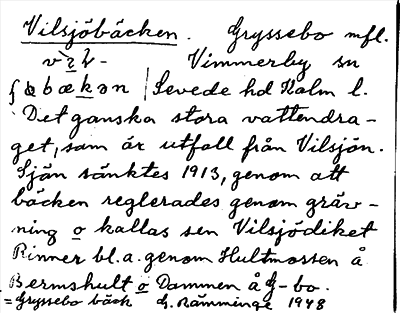 Vilsjöbäcken. Gryssebo mfl.
Vimmerby sn
Sevede hd Kalm l.
Det ganska stora vattendra-
get, som är utfall från Vilsjön.
Sjän sänktes 1913, genom att
bäcken reglerades genom gräv-
ning o kallas sen Vilsjödiket
Rinner bl.a. genom Hultmossen å
Bermshult o Dammen å G-bo.
= Gryssebo bäck G. Rämminge 1948